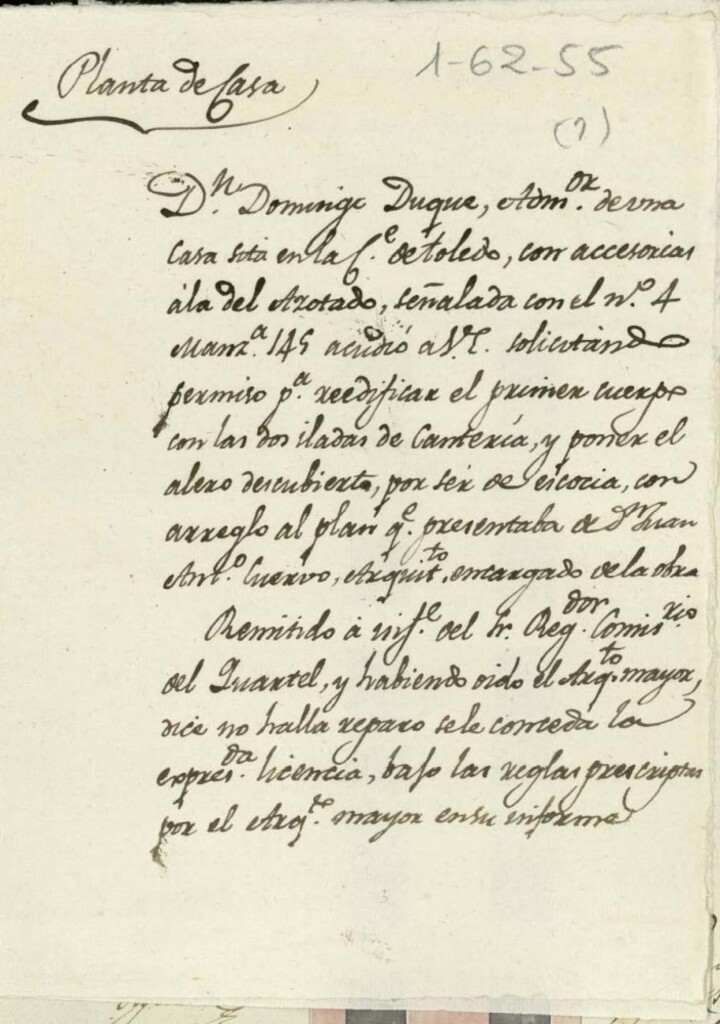 Planta de Casa
1-62-55
(1)
Dn. Domingo Duque, Admor. de una
Casa sita en la Ce. de Toledo, con accesorias
á la del Azotado, señalada con el no. 4
Manza. 145 acudió a V.E. solicitando
permiso pa. reedificar el primer cuerpo
con las dos iladas de Cantería, y poner el
alero descubierto, por ser de escocia, con
arreglo al plan qe. presentaba de Dn. Juan
Anto. Cuervo, Arquitto. encargado de la obra
Remitido á infe. del Sr. Regdor. Comisrio
del Quartel, y habiendo oido el Arqto. mayor,
dice no halla reparo se le conceda la
expresda. licencia, bajo las reglas prescriptas
por el Arqto. mayor en su informe